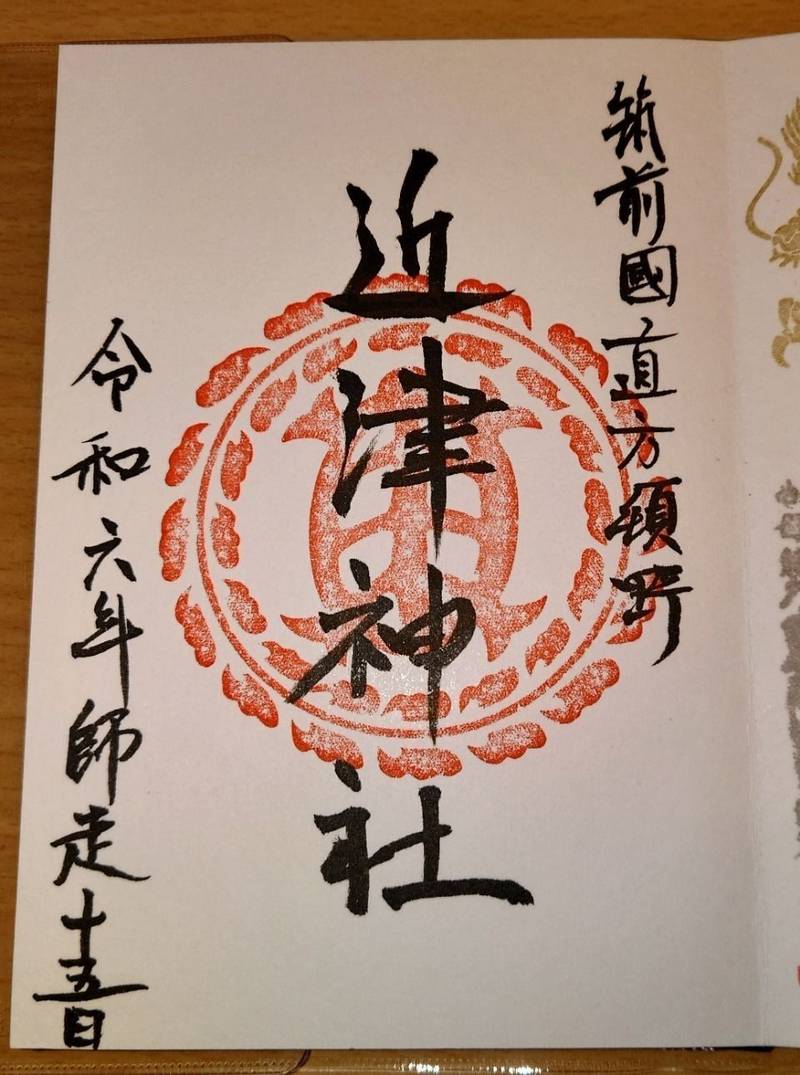 筑前國直方頓野
近津神社
令和六年師走十五日